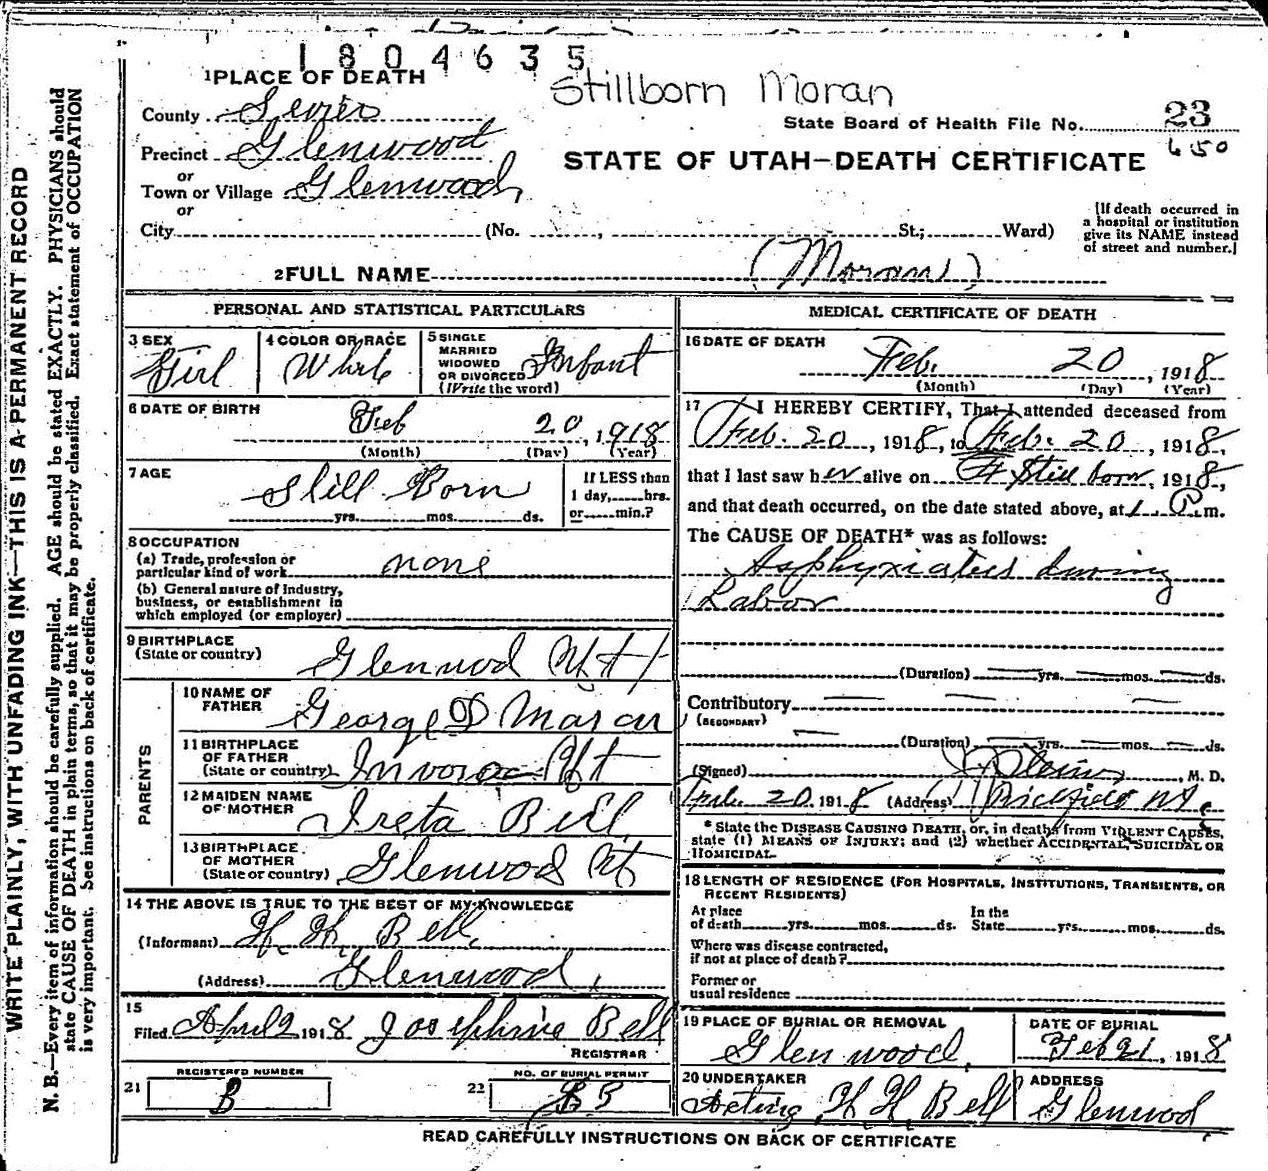 1804635
Stillborn Moran
1 PLACE OF DEATH
County Sevier
State Board of Health File No. 23
650
Precinct Glenwood
STATE OF UTAH—DEATH CERTIFICATE
or
Town or Village Glenwood
or
City (No. , St.; Ward)
[If death occurred in
a hospital or institution
give its NAME instead
of street and number.]
2 FULL NAME (Moran)
PERSONAL AND STATISTICAL PARTICULARS
3 SEX
Girl
4 COLOR OR RACE
White
5 SINGLE
MARRIED
WIDOWED
OR DIVORCED
(Write the word)
Infant
6 DATE OF BIRTH
Feb 20, 1918
(Month) (Day) (Year)
7 AGE
Still Born
yrs. mos. ds.
If LESS than
1 day, hrs.
or min.?
8 OCCUPATION
(a) Trade, profession or
particular kind of work none
(b) General nature of industry,
business, or establishment in
which employed (or employer)
9 BIRTHPLACE
(State or country) Glenwood Ut
PARENTS
10 NAME OF
FATHER George D Moran
11 BIRTHPLACE
OF FATHER
(State or country) Ut
12 MAIDEN NAME
OF MOTHER Ireta Bell
13 BIRTHPLACE
OF MOTHER
(State or country) Glenwood Ut
14 THE ABOVE IS TRUE TO THE BEST OF MY KNOWLEDGE
(Informant) H. H. Bell
(Address) Glenwood
15
Filed April 2 1918 Josephine Bell
REGISTRAR
21 REGISTERED NUMBER
B
22 NO. OF BURIAL PERMIT
MEDICAL CERTIFICATE OF DEATH
16 DATE OF DEATH
Feb. 20, 1918
(Month) (Day) (Year)
17 I HEREBY CERTIFY, That I attended deceased from
Feb. 20, 1918, to Feb. 20, 1918,
that I last saw her alive on Still born, 1918,
and that death occurred, on the date stated above, at 1 P.m.
The CAUSE OF DEATH* was as follows:
Asphyxiated during
Labor
(Duration) yrs. mos. ds.
Contributory
(SECONDARY)
(Duration) yrs. mos. ds.
(Signed) , M. D.
Feb. 20 1918 (Address) Richfield Ut.
* State the DISEASE CAUSING DEATH, or, in deaths from VIOLENT CAUSES,
state (1) MEANS OF INJURY; and (2) whether ACCIDENTAL, SUICIDAL OR
HOMICIDAL.
18 LENGTH OF RESIDENCE (FOR HOSPITALS, INSTITUTIONS, TRANSIENTS, OR
RECENT RESIDENTS)
At place
of death yrs. mos. ds.
In the
State yrs. mos. ds.
Where was disease contracted,
if not at place of death?
Former or
usual residence
19 PLACE OF BURIAL OR REMOVAL
Glenwood
DATE OF BURIAL
Feb 21, 1918
20 UNDERTAKER
Acting H H Bell
ADDRESS
Glenwood
READ CAREFULLY INSTRUCTIONS ON BACK OF CERTIFICATE
WRITE PLAINLY, WITH UNFADING INK—THIS IS A PERMANENT RECORD
N. B.—Every item of information should be carefully supplied. AGE should be stated EXACTLY. PHYSICIANS should
state CAUSE OF DEATH in plain terms, so that it may be properly classified. Exact statement of OCCUPATION
is very important. See instructions on back of certificate.